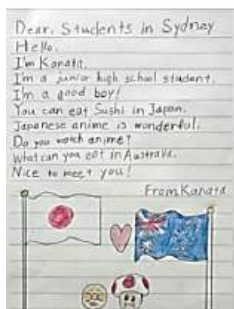 Dear. Students in Sydney
Hello.
I'm Kanata.
I'm a junior high school student.
I'm a good boy!
You can eat Sushi in Japan.
Japanese anime is wonderful.
Do you watch anime?
What can you eat in Australia.
Nice to meet you!
From Kanata